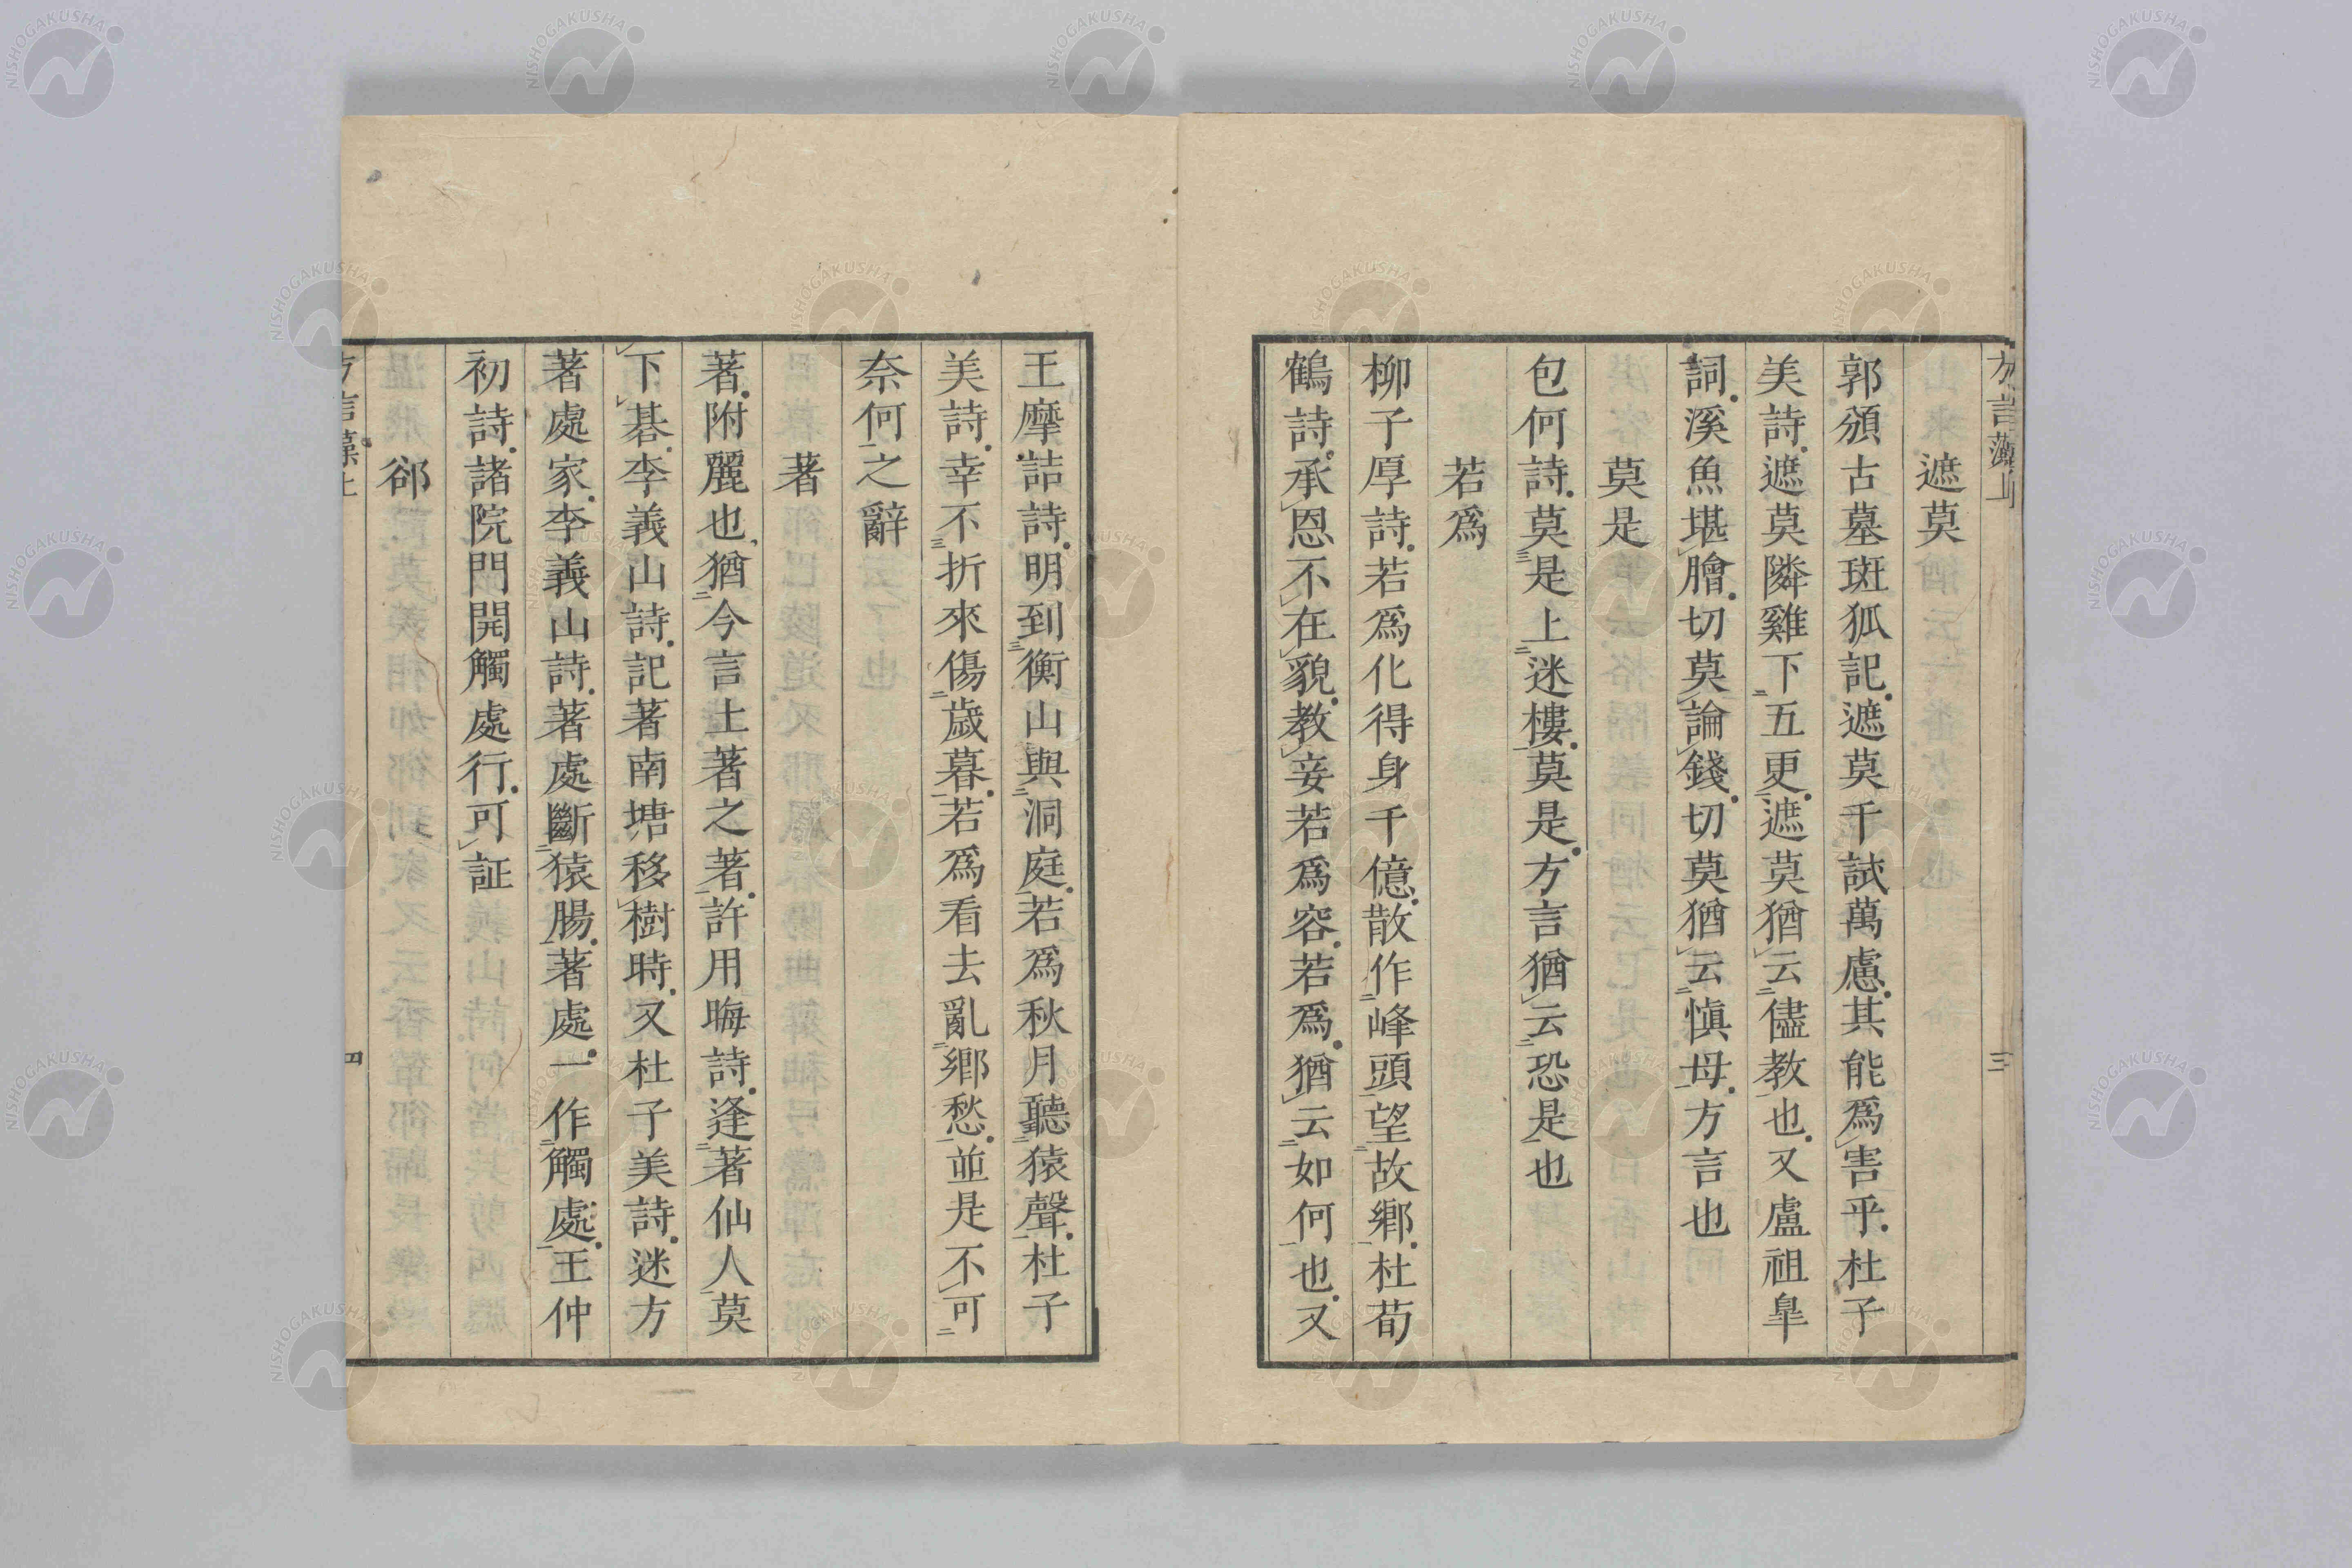 方言藻上
三
遮莫
郭頒古墓斑狐記遮莫千試萬慮其能爲害乎杜子
美詩遮莫隣雞下五更遮莫猶云儘教也又盧祖皐
詞溪魚堪膾切莫論錢切莫猶云愼毋方言也
莫是
包何詩莫是上迷樓莫是方言猶云恐是也
若爲
柳子厚詩若爲化得身千億散作峰頭望故鄉杜荀
鶴詩承恩不在貌教妾若爲容若爲猶云如何也又
王摩詰詩明到衡山與洞庭若爲秋月聽猿聲杜子
美詩幸不折來傷歲暮若爲看去亂鄉愁並是不可
奈何之辭
著
著附麗也猶今言土著之著許用晦詩逢著仙人莫
下碁李義山詩記著南塘移樹時又杜子美詩迷方
著處家李義山詩著處斷猿腸著處一作觸處王仲
初詩諸院門開觸處行可証
卻
方言藻上
四
NISHOGAKUSHA